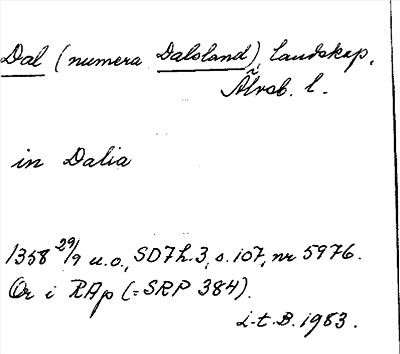 Dal (numera Dalsland), landskap,
Älvsb. l.
in Dalia
1358 29/9 u.o., SD 7 h. 3, s. 107, nr 5976.
Or i RAp (=SRP 384).
i-t. B. 1983.